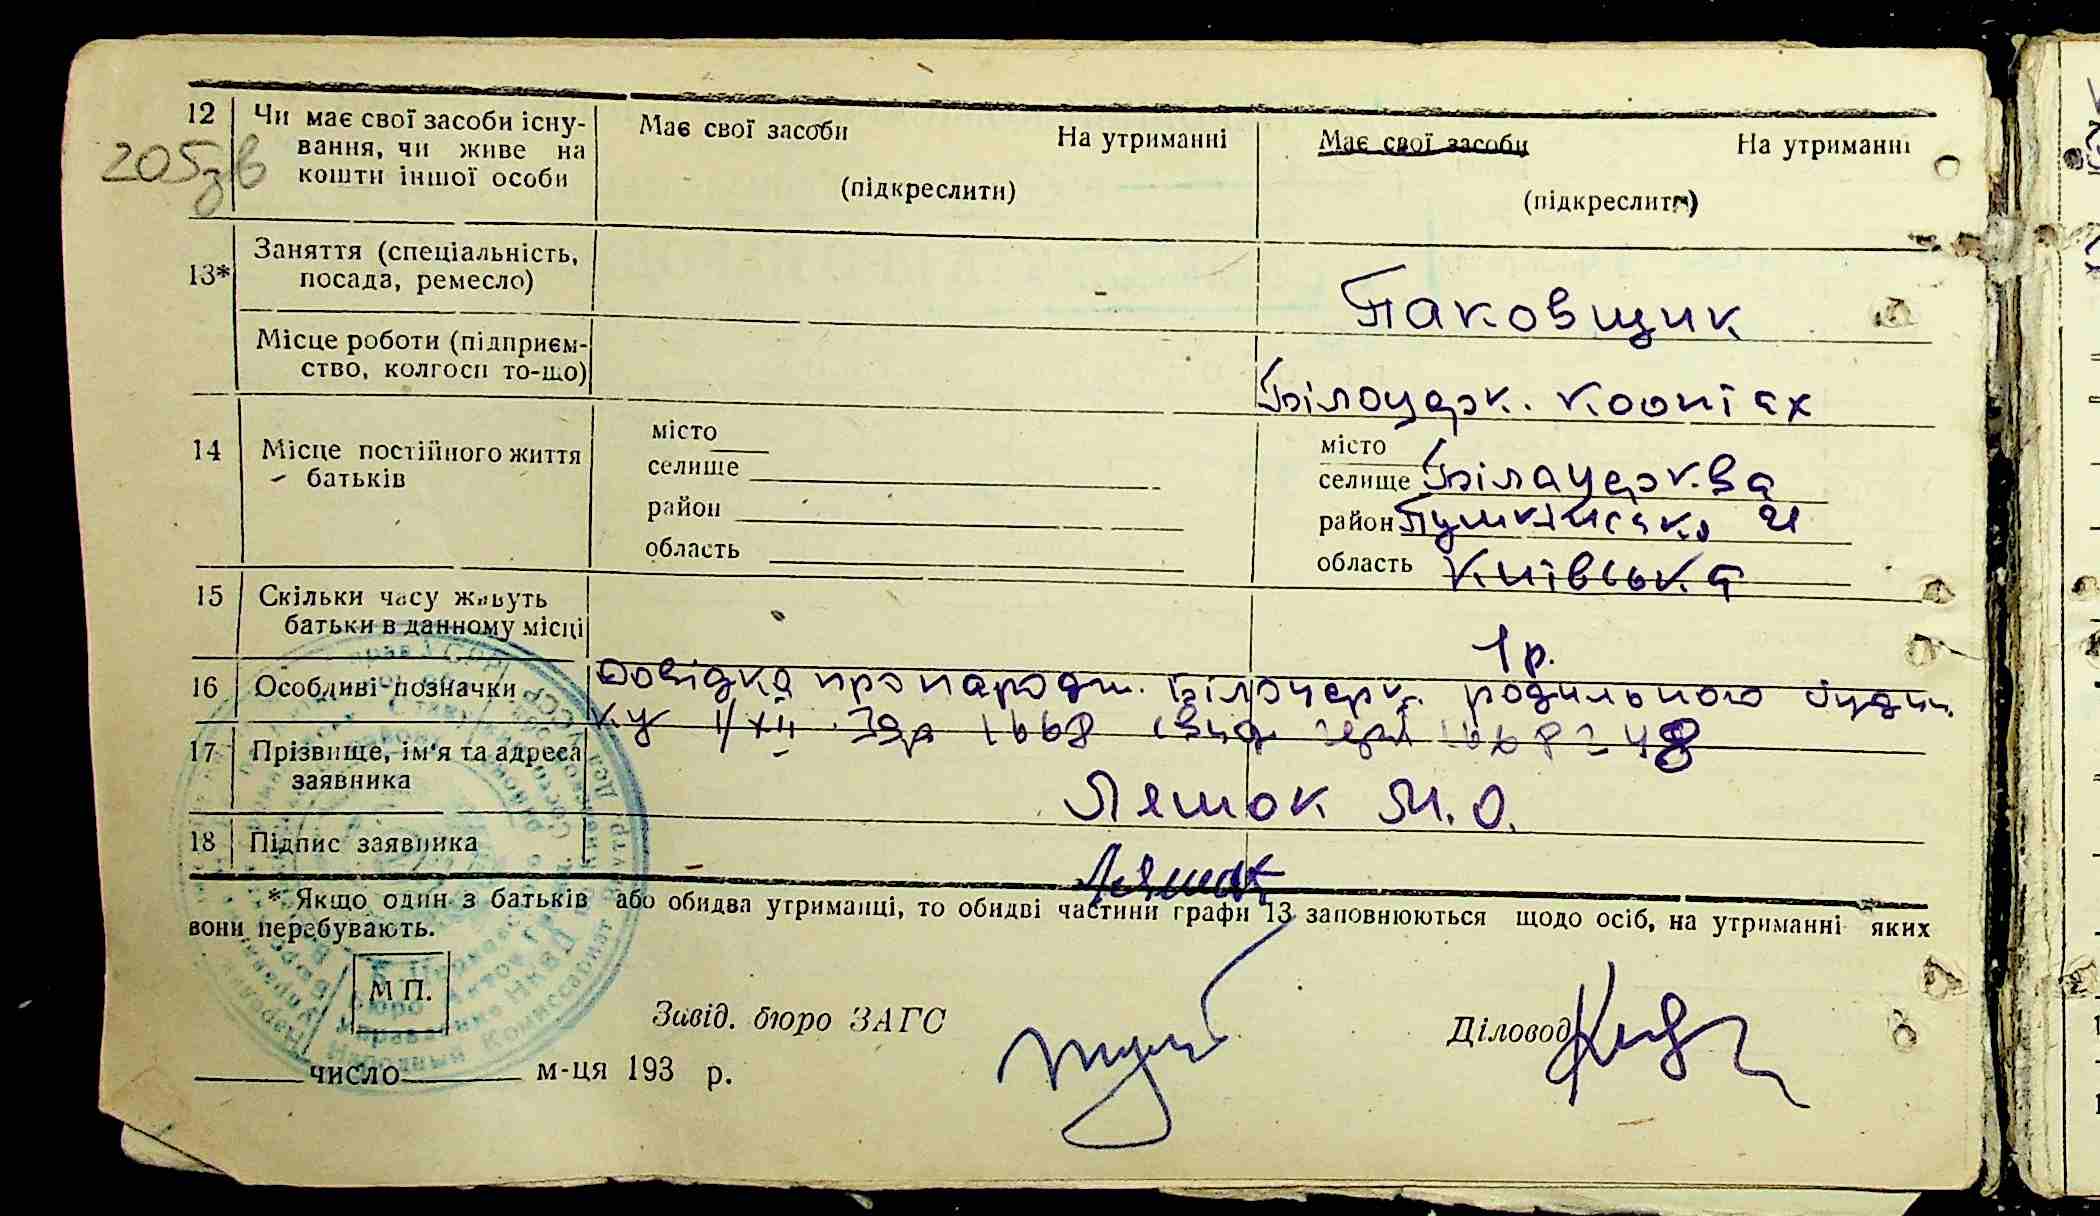 12 Чи має свої засоби існу- Має свої засоби На утриманні Має свої засоби На утриманні
вання, чи живе на
кошти іншої особи (підкреслити) (підкреслити)
205зв
13* Заняття (спеціальність, посада, ремесло) Паковщик
Місце роботи (підприєм-
ство, колгосп то-що) Білоцерк.
14 Місце постійного життя місто місто
батьків селище селище Білацерква
район район
область область Київська
15 Скільки часу живуть
батьки в данному місці 1 р.
16 Особдиві позначки Довідка про народж. Білоцерк. родильного будин.
ку 1/XII 39р 1668
17 Прізвище, ім'я та адреса
заявника Ляшок М. О.
18 Підпис заявника Ляшок
* Якщо один з батьків або обидва утриманці, то обидві частини графи 13 заповнюються щодо осіб, на утриманні яких
вони перебувають.
М П.
Завід. бюро ЗАГС Діловод
число м-ця 193 р.